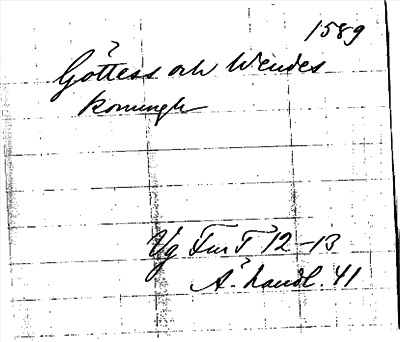 1589
Göttess och Wendes
konungh
Vg Tur T 12-13
Å. handl. 41